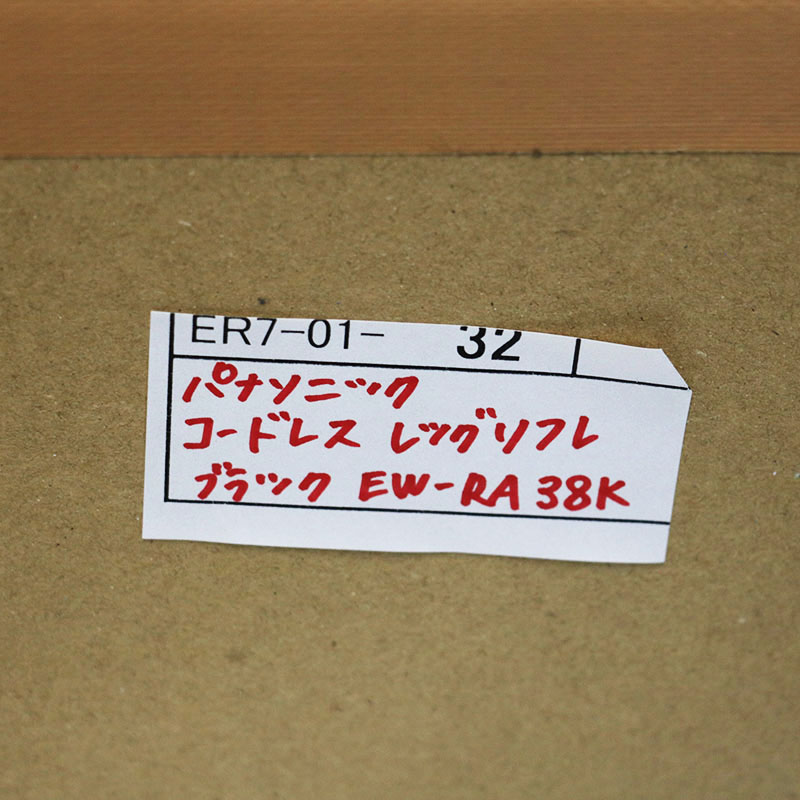 ER7-01- 32
パナソニック
コードレス レッグリフレ
ブラック EW-RA38K